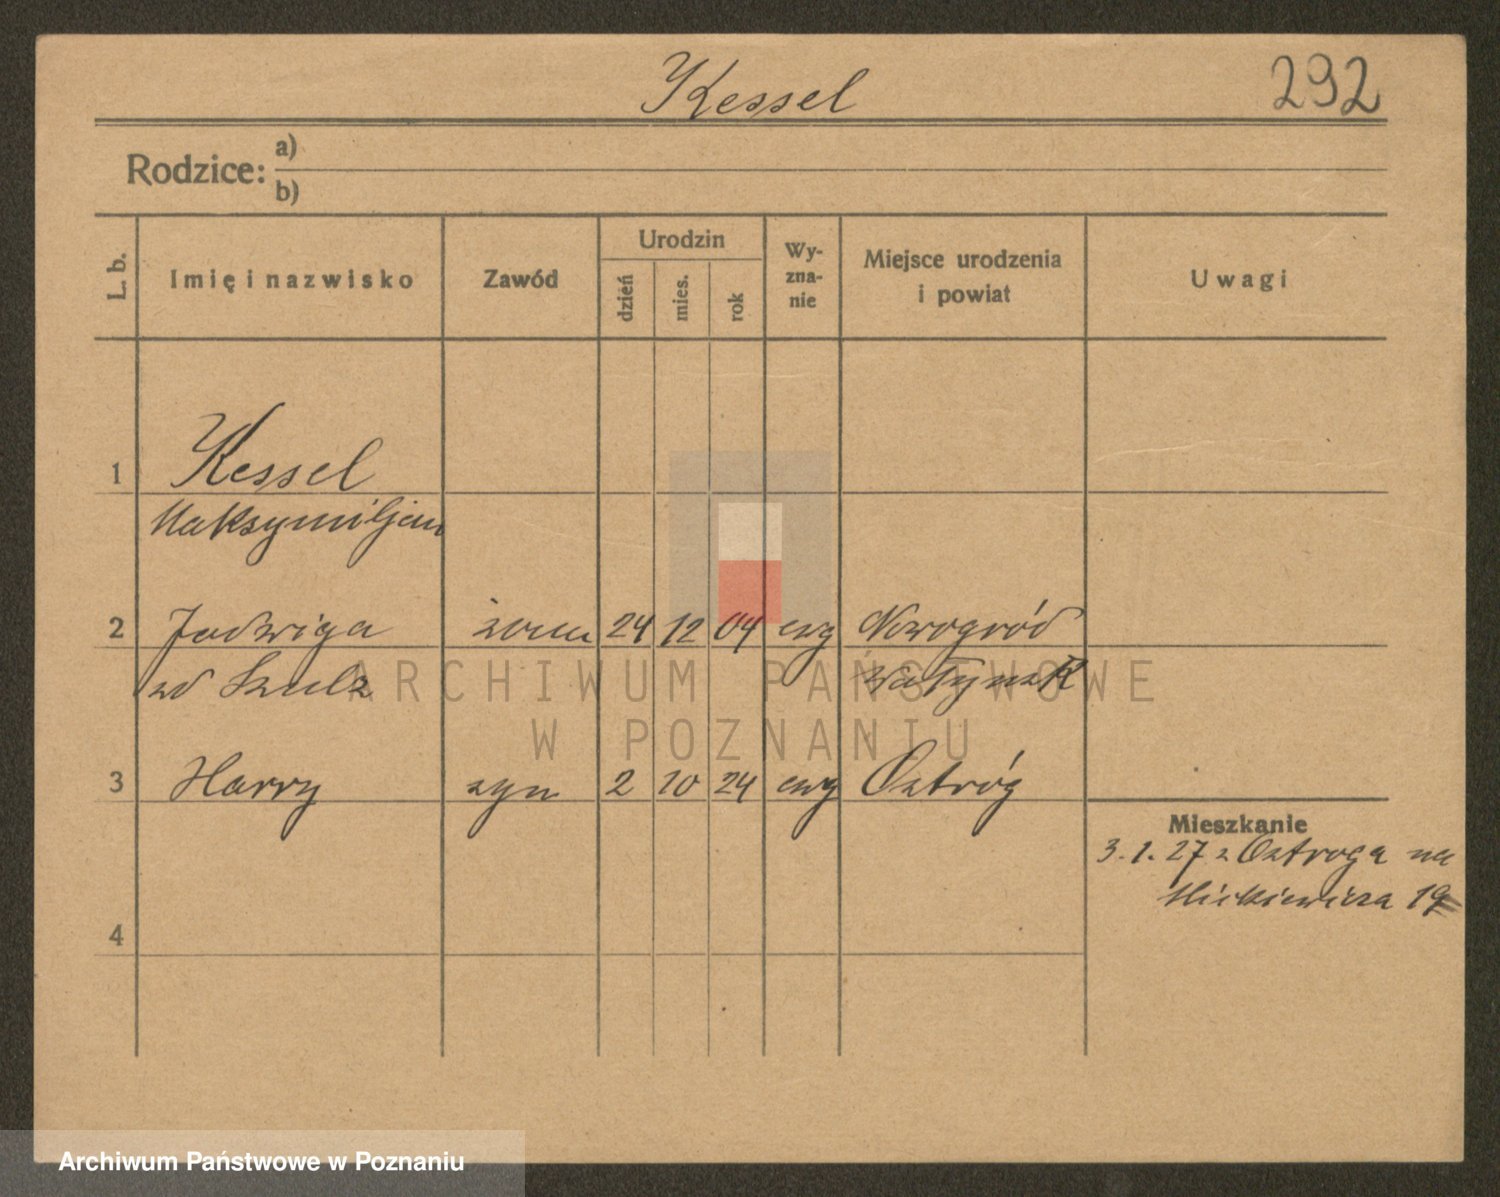 Kessel
292
Rodzice:
a)
b)
L. b.
Imię i nazwisko
Zawód
Urodzin
dzień
mies.
rok
Wy-
zna-
nie
Miejsce urodzenia
i powiat
Uwagi
1 Kessel
Maksymiljan
2 Jadwiga żona 24 12 04 ewg Nowogród
zd Szulz Wołyńsk
3 Harry syn 2 10 24 ewg Ostróg
Mieszkanie
3.1.27 z Ostroga na
Mickiewicza 19
4
ARCHIWUM PAŃSTWOWE
W POZNANIU
Archiwum Państwowe w Poznaniu